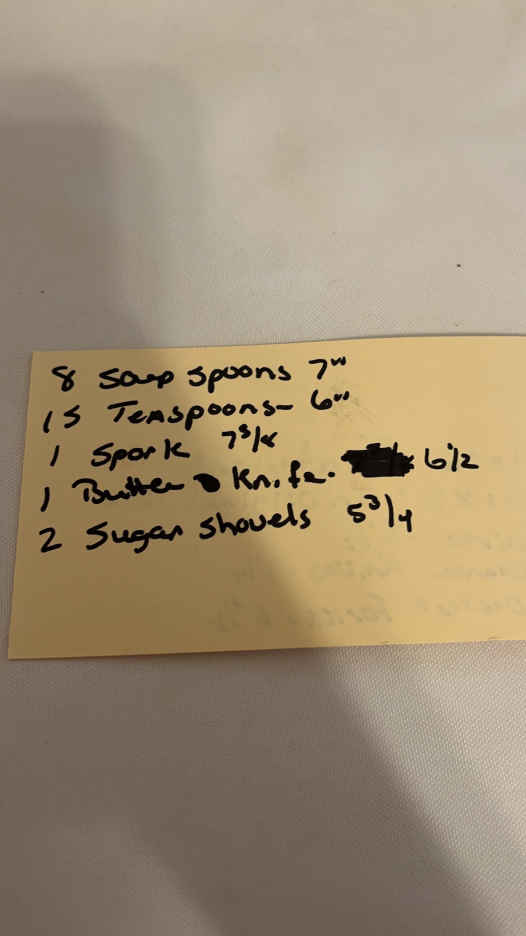 8 Soup spoons 7"
15 Teaspoons- 6"
1 Spork 7 5/8
1 Butter Knife. 6 1/2
2 Sugar shovels 5 3/4